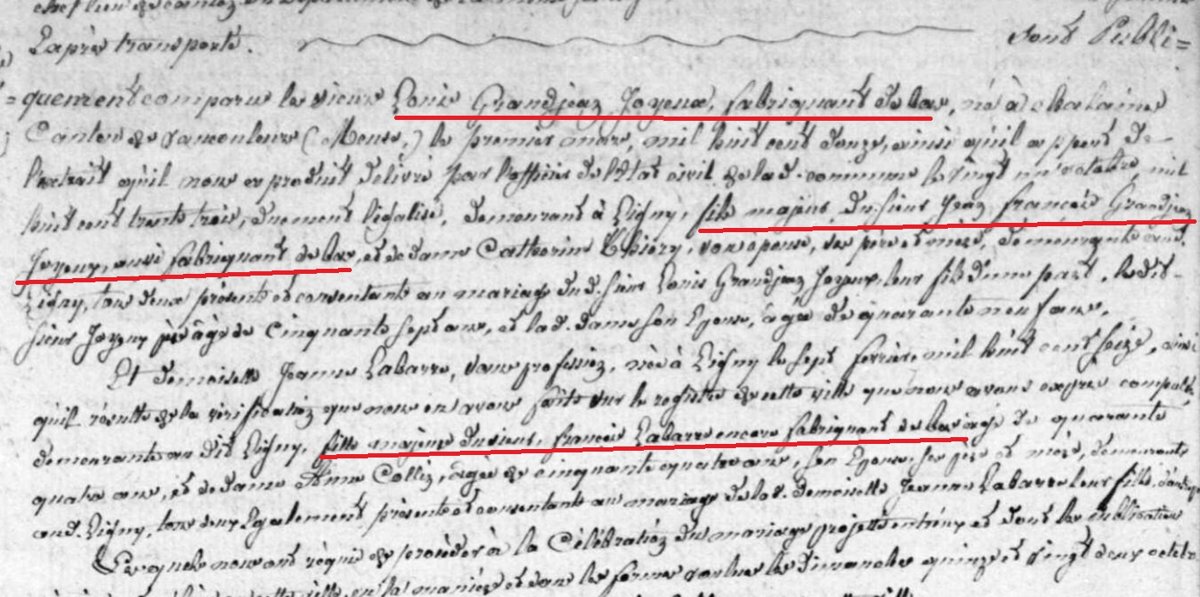 L'après transporté.    Sont Publi=
=quement comparu le sieur Louis Grandjean Joyeux, fabriquant de bas, né à chalaine
Canton de vaucouleurs (Meuse,) le premier mars, mil huit cent douze, ainsi qu'il appert de
l'extrait qu'il nous en produit délivré par l'officier de l'état civil de la d. commune le vingt un octobre, mil
huit cent trente trois, duement légalisé, demeurant à Ligny, fils majeur du sieur Jean françois Grandjean
Joyeux, aussi fabriquant de bas, et de dame Catherine Thiéry, son épouse, ses père et mère, demeurants aud.
Ligny, tous deux présents et consentants au mariage dud. sieur Louis Grandjean Joyeux, leur fils d'une part. le dit
sieur Joyeux père âgé de cinquante sept ans, et lad. dame son Epouse, âgée de quarante neuf ans.
Et demoiselle Jeanne Labarre, sans profession, née à Ligny le sept février mil huit cent seize, ainsi
qu'il résulte de la vérification que nous en avons faite sur le registre de cette ville que nous avons exprès compulsé
demeurante au dit Ligny, fille majeure du sieur françois Labarre encore fabriquant de bas âgé de quarante
quatre ans, et de dame Anne Collin, âgée de cinquante quatre ans, son Epouse, ses père et mère, demeurants
aud. Ligny, tous deux Egalement présents et consentants au mariage de lad. demoiselle Jeanne Labarre leur fille, d'autre
Lesquels nous ont requis de procéder à la Célébration du mariage projetté entr'eux et dont les publications
de cette ville, en la manière et dans la forme voulue les dimanches quinze et vingt deux octobre